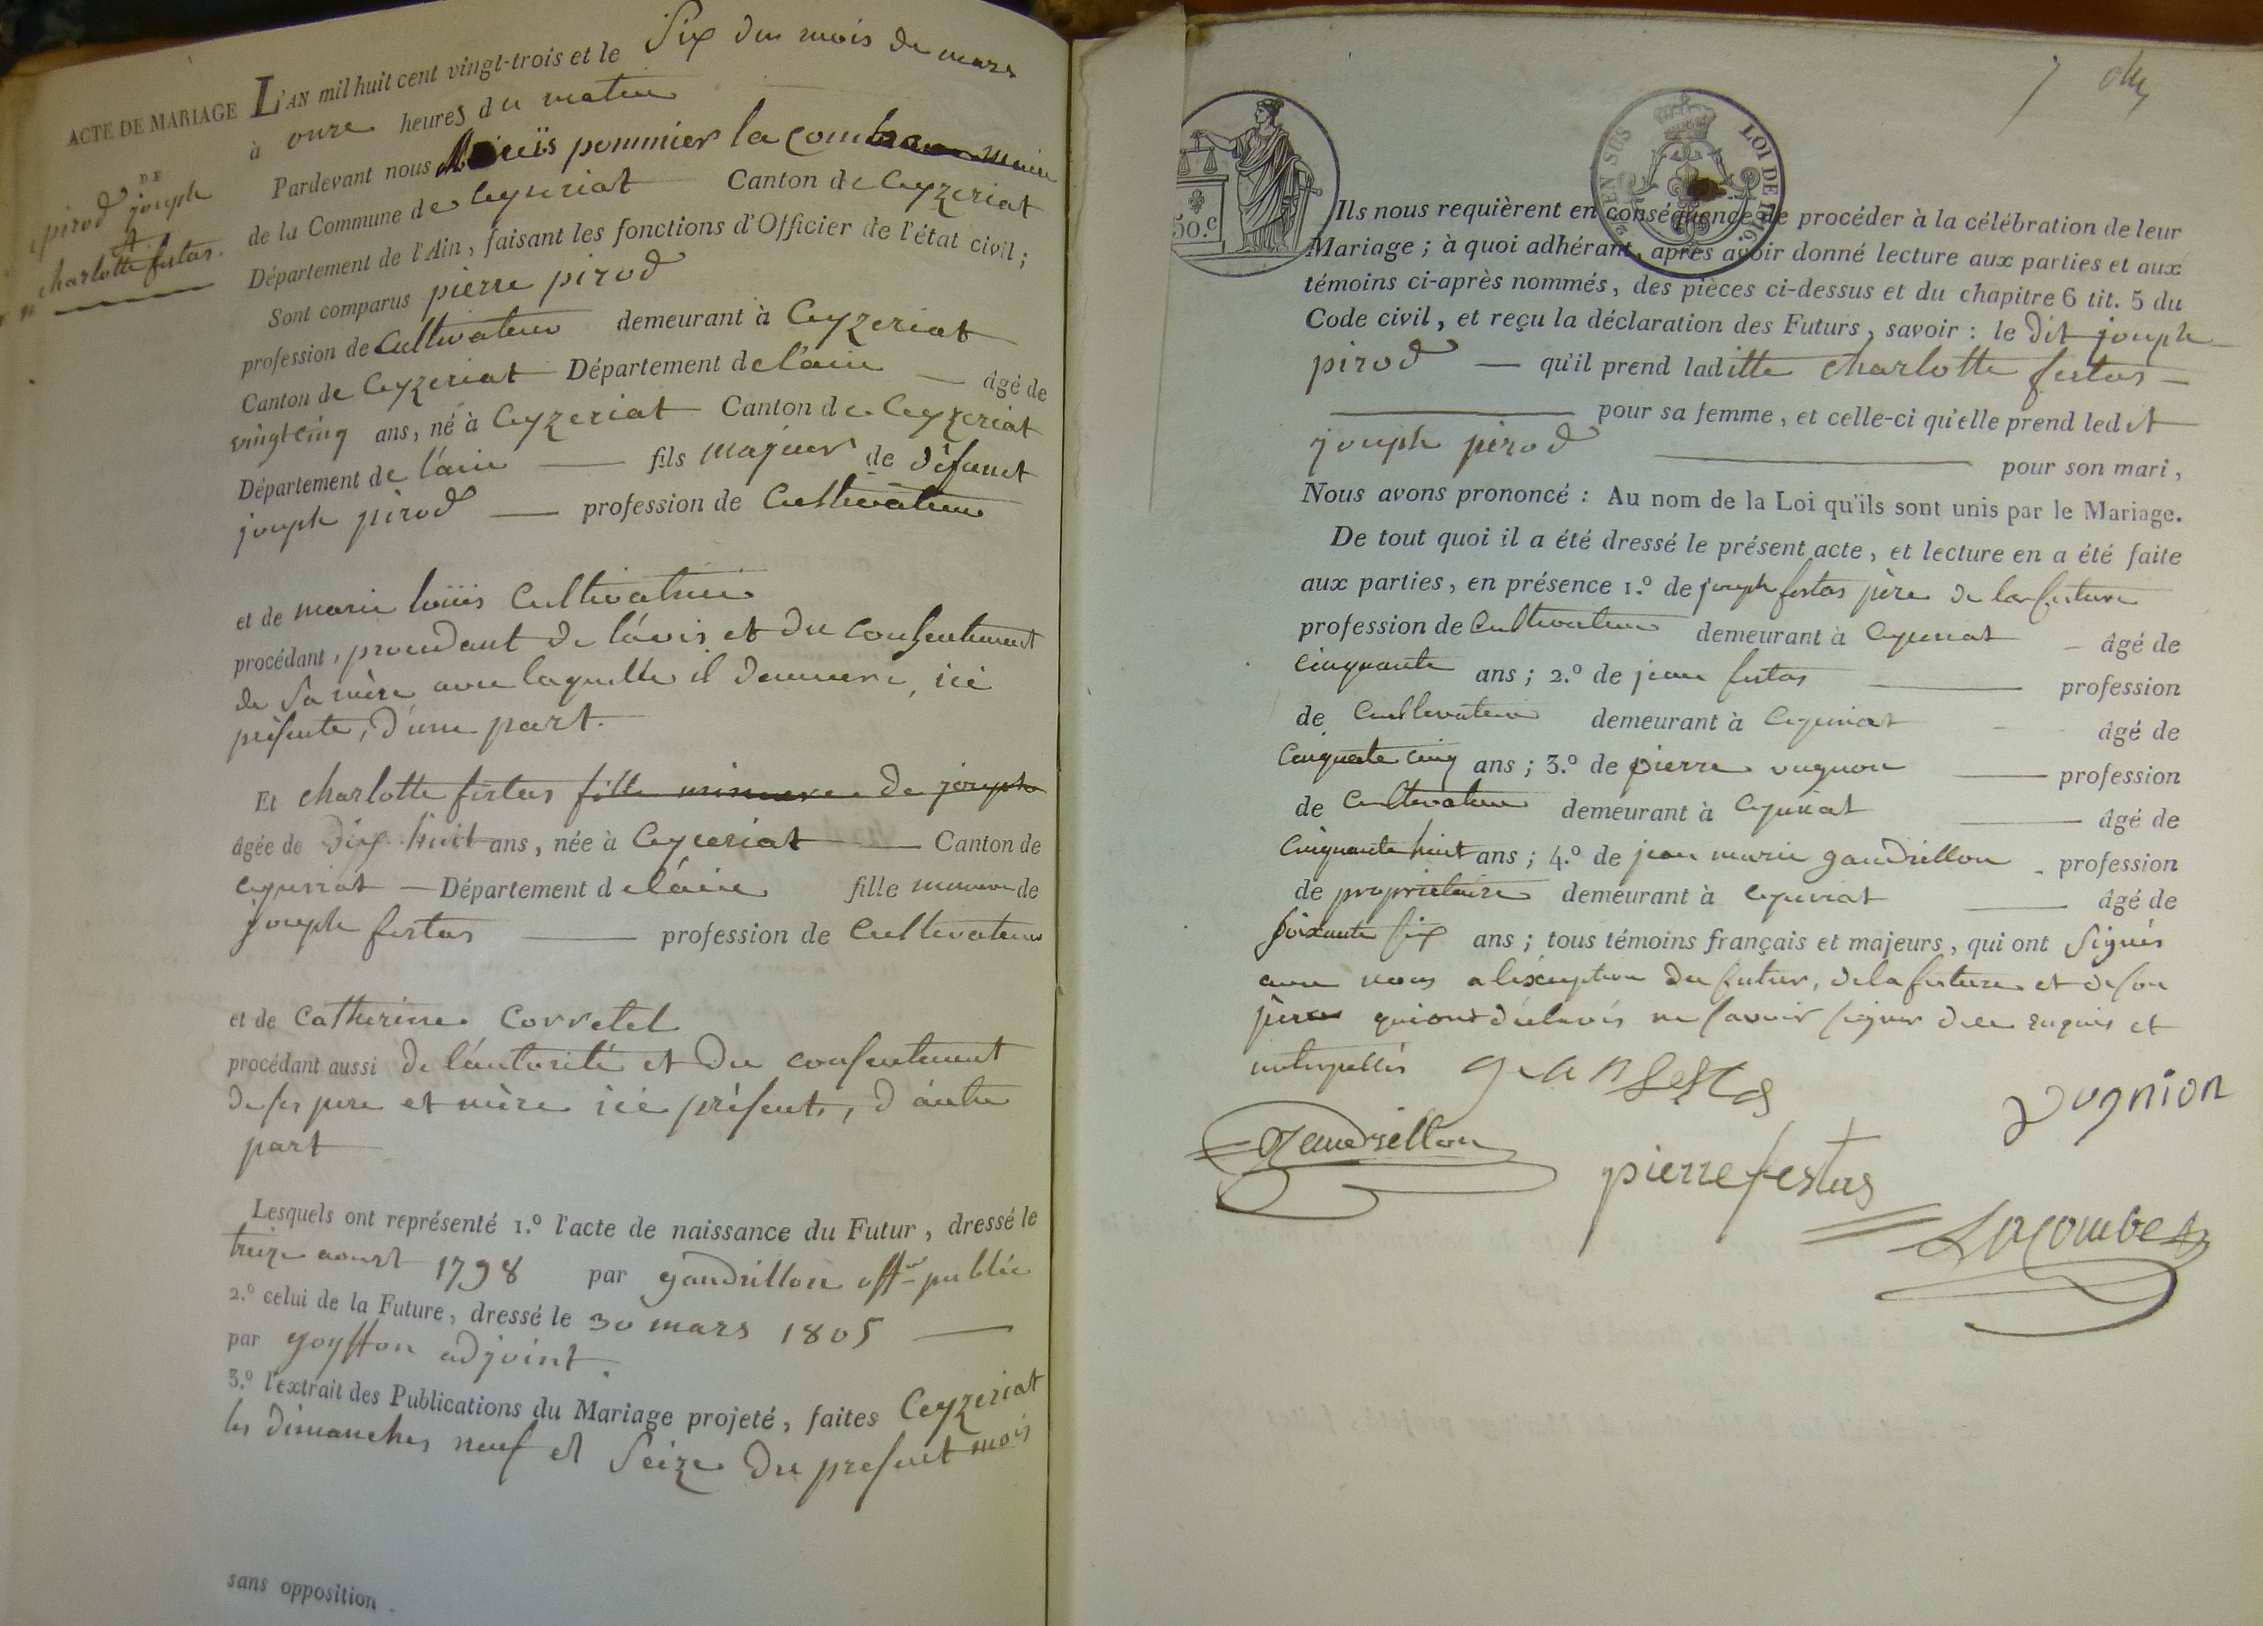 ACTE DE MARIAGE
DE
pirod joseph
&
charlotte festas.
L'AN mil huit cent vingt-trois et le Six du mois de mars
à onze heures du matin
Pardevant nous Loüis pommier la combe maire
de la Commune de Ceyzeriat Canton de Ceyzeriat
Département de l'Ain, faisant les fonctions d'Officier de l'état civil;
Sont comparus pierre pirod
profession de Cultivateur demeurant à Ceyzeriat
Canton de Ceyzeriat Département de l'ain — âgé de
vingt cinq ans, né à Ceyzeriat Canton de Ceyzeriat
Département de l'ain — fils majeur de défunt
joseph pirod — profession de Cultivateur
et de marie loüis Cultivatrice
procédant, procedant de l'avis et du consentement
de Sa mère avec laquelle il demeure, ici
présente, d'une part.
Et charlotte festas fille mineure de joseph
âgée de dix huit ans, née à Ceyzeriat — Canton de
Ceyzeriat — Département de l'ain fille mineure de
joseph festas — profession de Cultivateur
et de Catherine Corretel
procédant aussi de l'autorité et du consentement
de ses pere et mère ici présents, d'autre
part
Lesquels ont représenté 1.º l'acte de naissance du Futur, dressé le
treize aoust 1798 par gaudrillon off.er public
2.º celui de la Future, dressé le 30 mars 1805 —
par goyffon adjoint.
3.º l'extrait des Publications du Mariage projeté, faites Ceyzeriat
les dimanches neuf et Seize du present mois
sans opposition
7
50.c
EN SUS
LOI DE 1816.
Ils nous requièrent en conséquence de procéder à la célébration de leur
Mariage; à quoi adhérant, après avoir donné lecture aux parties et aux
témoins ci-après nommés, des pièces ci-dessus et du chapitre 6 tit. 5 du
Code civil, et reçu la déclaration des Futurs, savoir: le dit joseph
pirod — qu'il prend laditte charlotte festas —
— pour sa femme, et celle-ci qu'elle prend ledit
joseph pirod — pour son mari,
Nous avons prononcé: Au nom de la Loi qu'ils sont unis par le Mariage.
De tout quoi il a été dressé le présent acte, et lecture en a été faite
aux parties, en présence 1.º de joseph festas père de la future
profession de Cultivateur demeurant à Ceyzeriat — âgé de
cinquante ans; 2.º de jean festas — profession
de Cultivateur demeurant à Ceyzeriat - âgé de
Cinquante cinq ans; 3.º de pierre vugnon — profession
de Cultivateur demeurant à Ceyzeriat — âgé de
Cinquante huit ans; 4.º de jean marie gaudrillon - profession
de proprietaire demeurant à Ceyzeriat — âgé de
Soixante six ans; tous témoins français et majeurs, qui ont Signés
avec nous a l'exception du futur, de la future et de son
père qui ont déclarés ne savoir signer de ce enquis et
interpellés
jean festas
vugnion
gaudrillon
pierre festas
Lacombe